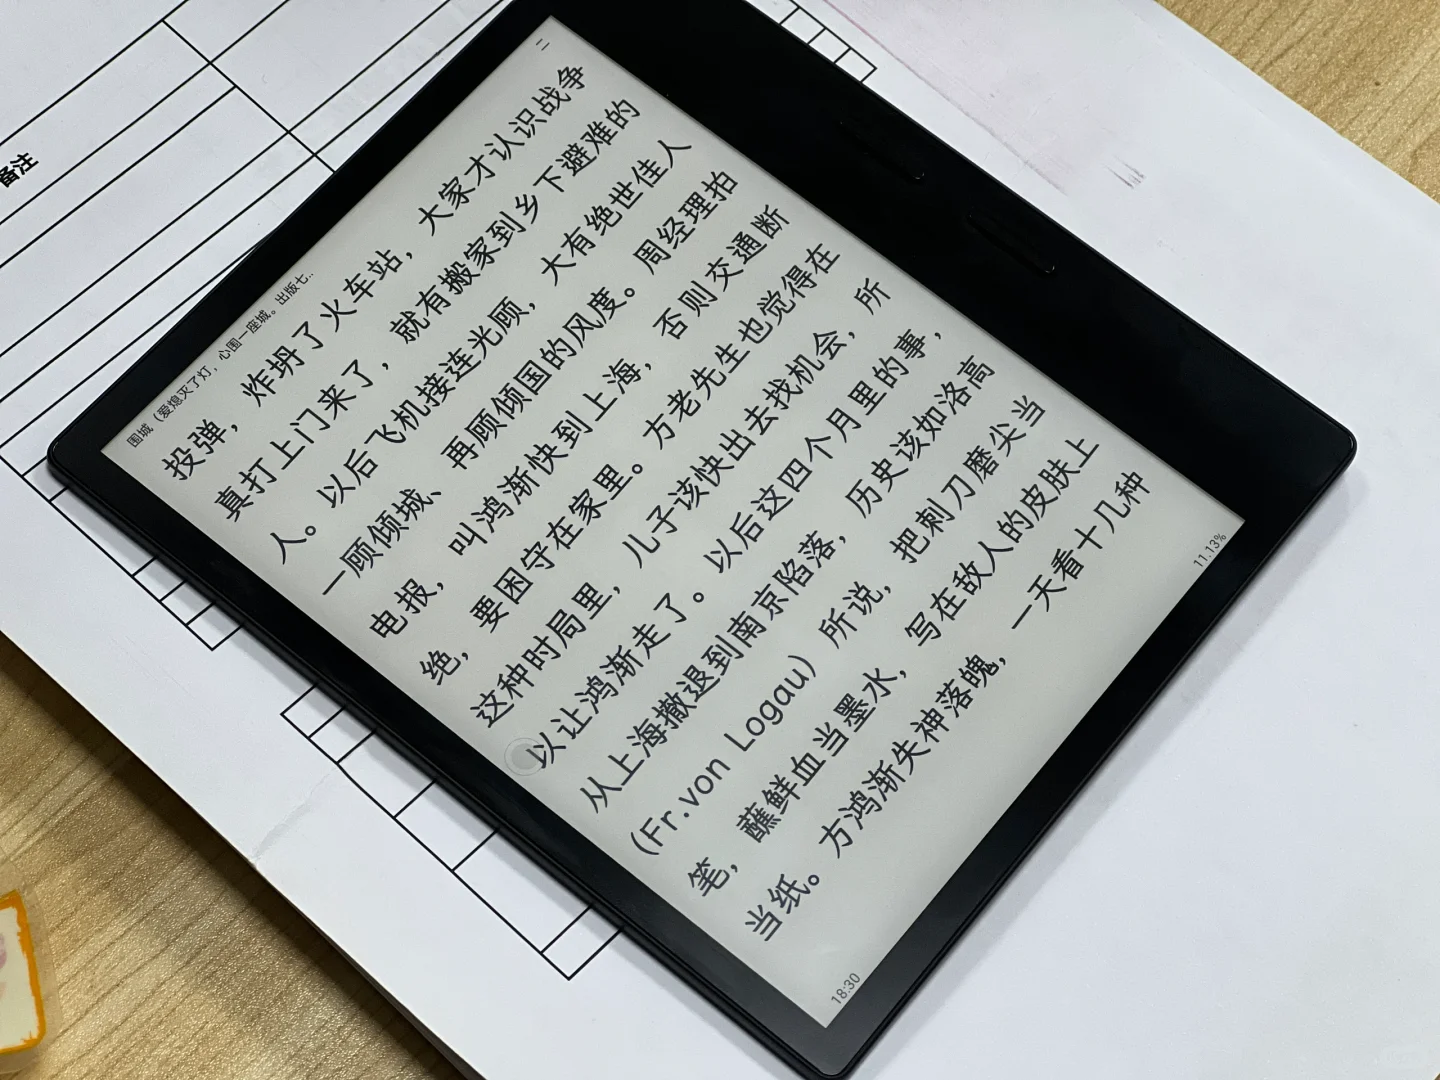 备注
围城（爱熄灭了灯，心围一座城。出版七..
二
投弹，炸坍了火车站，大家才认识战争
真打上门来了，就有搬家到乡下避难的
人。以后飞机接连光顾，大有绝世佳人
一顾倾城、再顾倾国的风度。周经理拍
电报，叫鸿渐快到上海，否则交通断
绝，要困守在家里。方老先生也觉得在
这种时局里，儿子该快出去找机会，所
以让鸿渐走了。以后这四个月里的事，
从上海撤退到南京陷落，历史该如洛高
(Fr.von Logau）所说，把刺刀磨尖当
笔，蘸鲜血当墨水，写在敌人的皮肤上
当纸。方鸿渐失神落魄，一天看十几种
18:30
11.13%